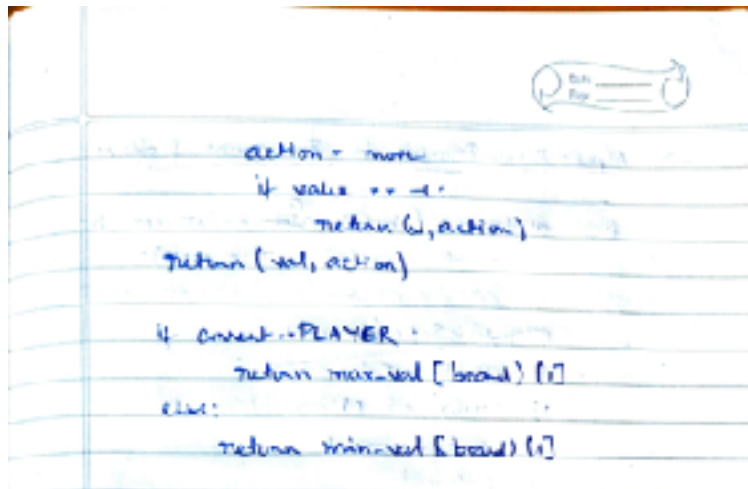 Date
Page
action = move
if value == -1:
return (v, action)
return (val, action)
if current == PLAYER:
return max_val [board) [1]
else:
return min_val [board) [1]